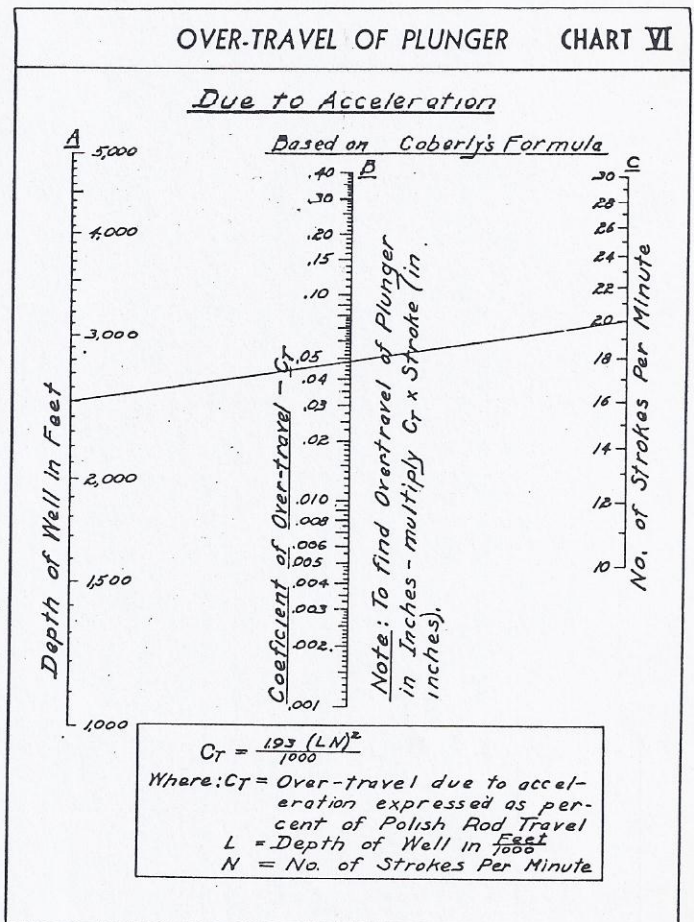 OVER-TRAVEL OF PLUNGER CHART VI
Due to Acceleration
Based on Coberly's Formula
A
5,000
4,000
3,000
2,000
1,500
1,000
Depth of Well in Feet
B
.40
.30
.20
.15
.10
.05
.04
.03
.02
.010
.008
.006
.005
.004
.003
.002
.001
Coeficient of Over-travel - CT
Note: To find Overtravel of Plunger
in Inches - multiply CT x Stroke (in
inches).
C
30
28
26
24
22
20
18
16
14
12
10
No. of Strokes Per Minute
CT = 1.93 (LN)²
1000
Where: CT = Over-travel due to accel-
eration expressed as per-
cent of Polish Rod Travel
L = Depth of Well in Feet/1000
N = No. of Strokes Per Minute